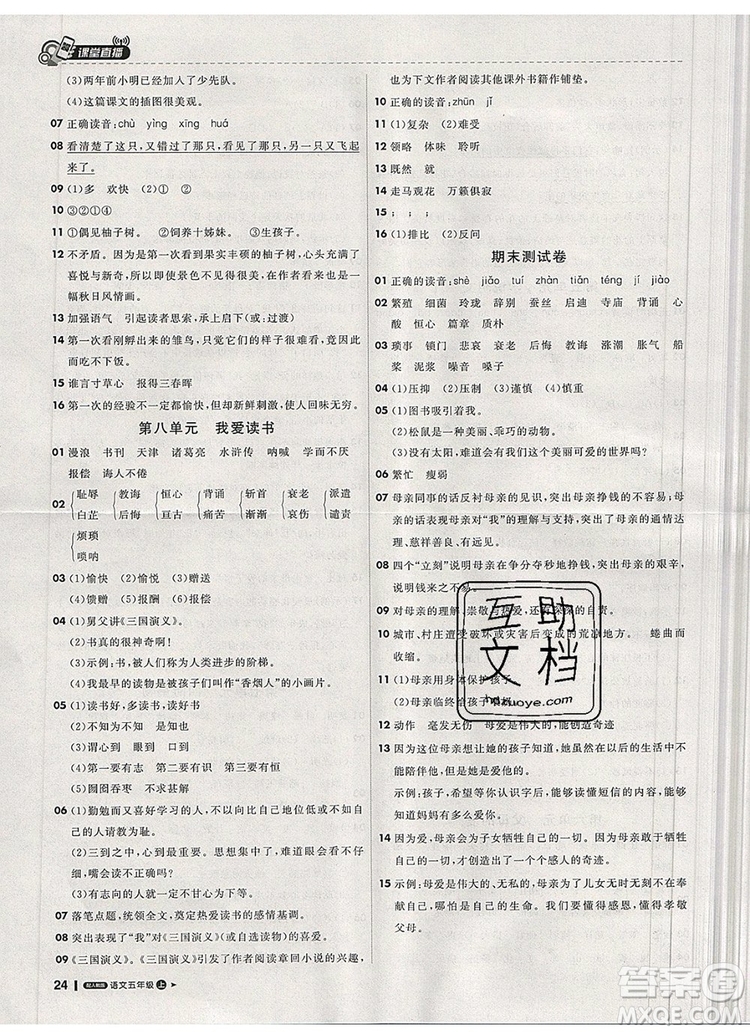 课堂直播
(3)两年前小明已经加入了少先队。
(4)这篇课文的插图很美观。
07 正确读音:chù yìng xīng huá
08 看清楚了这只,又错过了那只,看见了那只,另一只又飞起
来了。
09 (1)多 欢快 (2)① ②
10 ③②①④
11 ①偶见柚子树。 ②饲养十姊妹。 ③生孩子。
12 不矛盾。第一次看到果实丰硕的柚子树时,心头充满了
惊喜与新奇,所以使景色不见得美丽,在作者看来也是一
幅秋日风情画。
13 加强语气 引起读者思索,承上启下(或:过渡)
14 第一次看刚孵出来的雏鸟,那可笑的样子很难为它们,因
而吃不下饭。
15 谁言寸草心 报得三春晖
16 第一次的经验不一定都愉快,但却新鲜刺激,使人回味无穷。
第八单元 我爱读书
01 漫浪 书刊 天津 诸葛亮 水浒传 呐喊 学而不厌
报偿 诲人不倦
02 耻辱 教诲 恒心 背诵 斩首 衰老 派遣
白芷 后悔 亘古 痛苦 渐渐 哀伤 谴责
烦琐
唢呐
03 (1)愉快 (2)愉悦 (3)赠送
(4)馈赠 (5)报酬 (6)报偿
04 (1)舅父讲《三国演义》。
(2)书真的很神奇啊!
(3)示例:书籍是人类进步的阶梯。
(4)我最早的读物是被叫作“香烟人”的小画片。
05 (1)读书好,多读书,读好书
(2)不知为不知 是知也
(3)谓心到 眼到 口到
(4)第一要有志 第二要有识 第三要有恒
(5)囫囵吞枣 不求甚解
06 (1)勤勉而又喜好学习的人,不以向地位比自己低的
人请教为耻。
(2)三到之中,心到最要紧。思想集中了,难道眼会不仔
细,嘴会不正确诵读吗?
(3)有志向的人就一定不会甘居下游。
07 落笔点题,统领全文,奠定热爱读书的感情基调。
08 突出表现了“我”对《三国演义》(或自选读物)的喜爱。
09 《三国演义》。《三国演义》引发了作者阅读章回小说的兴趣,
也为下文作者阅读其他课外书籍作铺垫。
10 正确的读音:zhūn jī
11 (1)复杂 (2)难受
12 领略 体味 聆听
13 既然 就
14 走马观花 万籁俱寂
15 ; ; ;
16 (1)排比 (2)反问
期末测试卷
01 正确的读音:shè jiǎo tuí zhàn tiān téng jí jiào
02 繁殖 细菌 玲珑 辞别 蚕丝 启迪 寺庙 背诵 心
酸 恒心 篇章 质朴
03 琐事 锁门 悲哀 衰老 后悔 教诲 涨潮 胀气 船
桨 泥浆 噪音 嗓子
04 (1)压抑 (2)压制 (3)谨慎 (4)慎重
05 (1)图书吸引着我。
(2)松鼠是一种美丽的、乖巧的动物。
(3)没有太阳,难道会有我们这个美丽可爱的世界吗?
06 繁忙 瘦弱
07 母亲同事的话反衬母亲的见识,突出母亲挣钱的不容易;母
亲的话表现母亲对“我”的理解与支持,突出了母亲的通情达
理、慈祥善良。
08 四个“立刻”说明母亲在争分夺秒地挣钱,突出母亲的艰辛,
说明钱来之不易。
09 对母亲的理解、崇敬与热爱,还有深深的自责。
10 城市、村庄遭受破坏或灾害后变成的荒凉地方。 蜷曲而
收缩。
11 (1)母亲用身体保护孩子
(2)母亲临终给孩子
12 动作 毫发无伤 母爱是伟大的,能创造奇迹
13 因为这位母亲想让她的孩子知道,她虽然在以后的生活中不
能陪伴他,但她一直爱着他。
示例:孩子,希望等你认识字后,能够读懂短信的内容,能够
知道妈妈有多么爱你。
14 因为爱,母亲为了子女牺牲自己的一切。当自然灾难威胁
着孩子的生命时,作为母亲,首先想到的就是用自己的一切
来保护孩子,因而创造了一个个感人的奇迹。
15 示例:母爱是伟大的、无私的,母亲为了儿女可以牺牲自己
的一切,包括自己的生命。所以,我们要懂得感恩,懂得孝敬
父母。
互助文档
hdzuoye.com
24 配人教版 语文五年级 上
答案圈
MXQE.COM